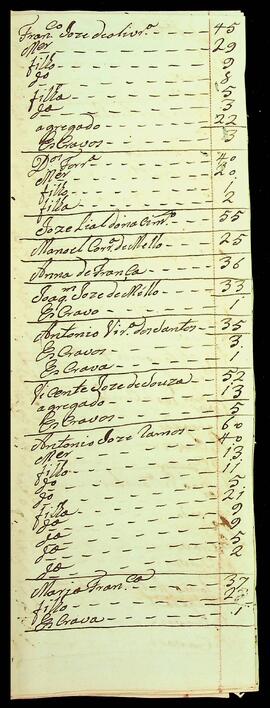 Franco Jose de olivra 45
Mer 29
filho 9
do 8
filha 5
da 3
agregado 22
Escravos 3
Dos Ferra 40
Mer 20
filho 1
filha 2
Joze Lial do na 55
Manoel Corra de Mello 25
Anna de França 36
Joaqm Joze de Mello 33
Escravo 1
Antonio Vira dos Santos 35
Escravos 3
Escrava 1
Vicente Joze de Souza 52
agregado 13
Escravos 5
Antonio Joze Ramos 60
Mer 40
filho 13
do 11
do 5
filha 21
da 9
da 9
da 5
da 2
Maria Franca 37
filho
Escrava 1